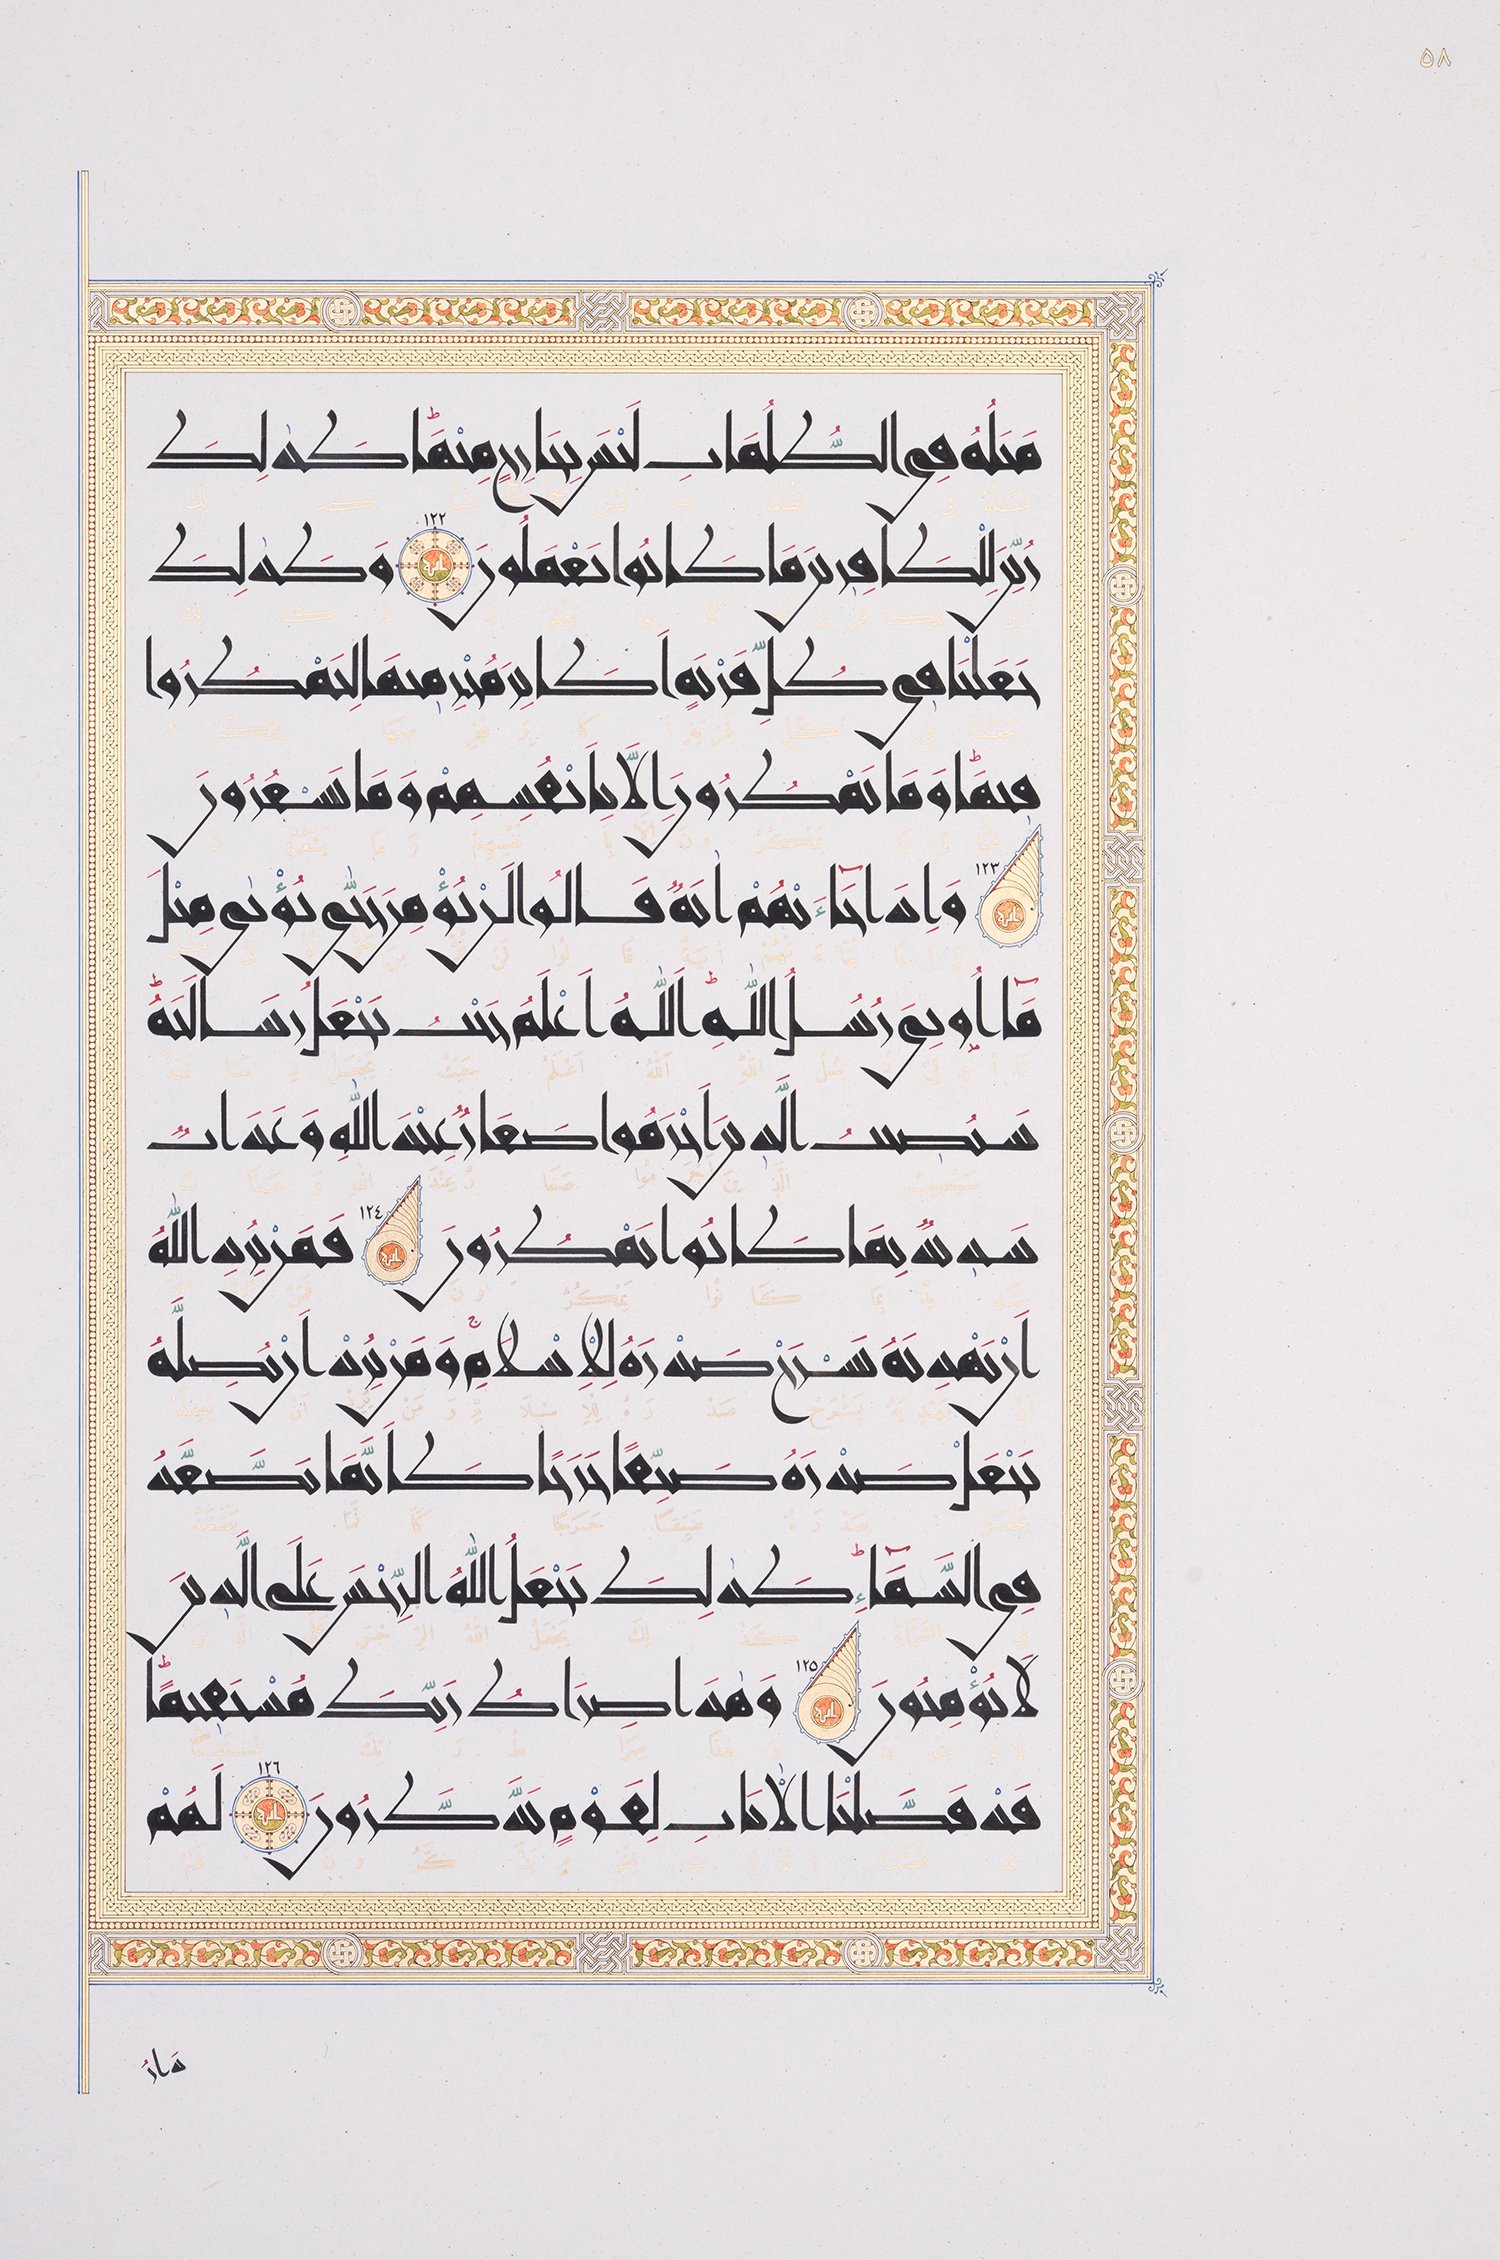 ٥٨
مَثَلُهُ فِي الظُّلُمَاتِ لَيْسَ بِخَارِجٍ مِنْهَاۚ كَذٰلِكَ
زُيِّنَ لِلْكَافِرِينَ مَا كَانُوا يَعْمَلُونَ ١٢٢ وَكَذٰلِكَ
جَعَلْنَا فِي كُلِّ قَرْيَةٍ أَكَابِرَ مُجْرِمِيهَا لِيَمْكُرُوا
فِيهَاۚ وَمَا يَمْكُرُونَ إِلَّا بِأَنْفُسِهِمْ وَمَا يَشْعُرُونَ
١٢٣ وَإِذَا جَآءَتْهُمْ اٰيَةٌ قَالُوا لَنْ نُؤْمِنَ حَتّٰى نُؤْتٰى مِثْلَ
مَآ أُوتِيَ رُسُلُ اللّٰهِۚ اَللّٰهُ أَعْلَمُ حَيْثُ يَجْعَلُ رِسَالَتَهُۚ
سَيُصِيبُ الَّذِينَ أَجْرَمُوا صَغَارٌ عِنْدَ اللّٰهِ وَعَذَابٌ
شَدِيدٌ بِمَا كَانُوا يَمْكُرُونَ ١٢٤ فَمَنْ يُرِدِ اللّٰهُ
أَنْ يَهْدِيَهُ يَشْرَحْ صَدْرَهُ لِلْإِسْلَامِۚ وَمَنْ يُرِدْ أَنْ يُضِلَّهُ
يَجْعَلْ صَدْرَهُ ضَيِّقًا حَرَجًا كَأَنَّمَا يَصَّعَّدُ
فِي السَّمَآءِۚ كَذٰلِكَ يَجْعَلُ اللّٰهُ الرِّجْسَ عَلَى الَّذِينَ
لَا يُؤْمِنُونَ ١٢٥ وَهٰذَا صِرَاطُ رَبِّكَ مُسْتَقِيمًاۚ
قَدْ فَصَّلْنَا الْاٰيَاتِ لِقَوْمٍ يَذَّكَّرُونَ ١٢٦ لَهُمْ
دَارُ